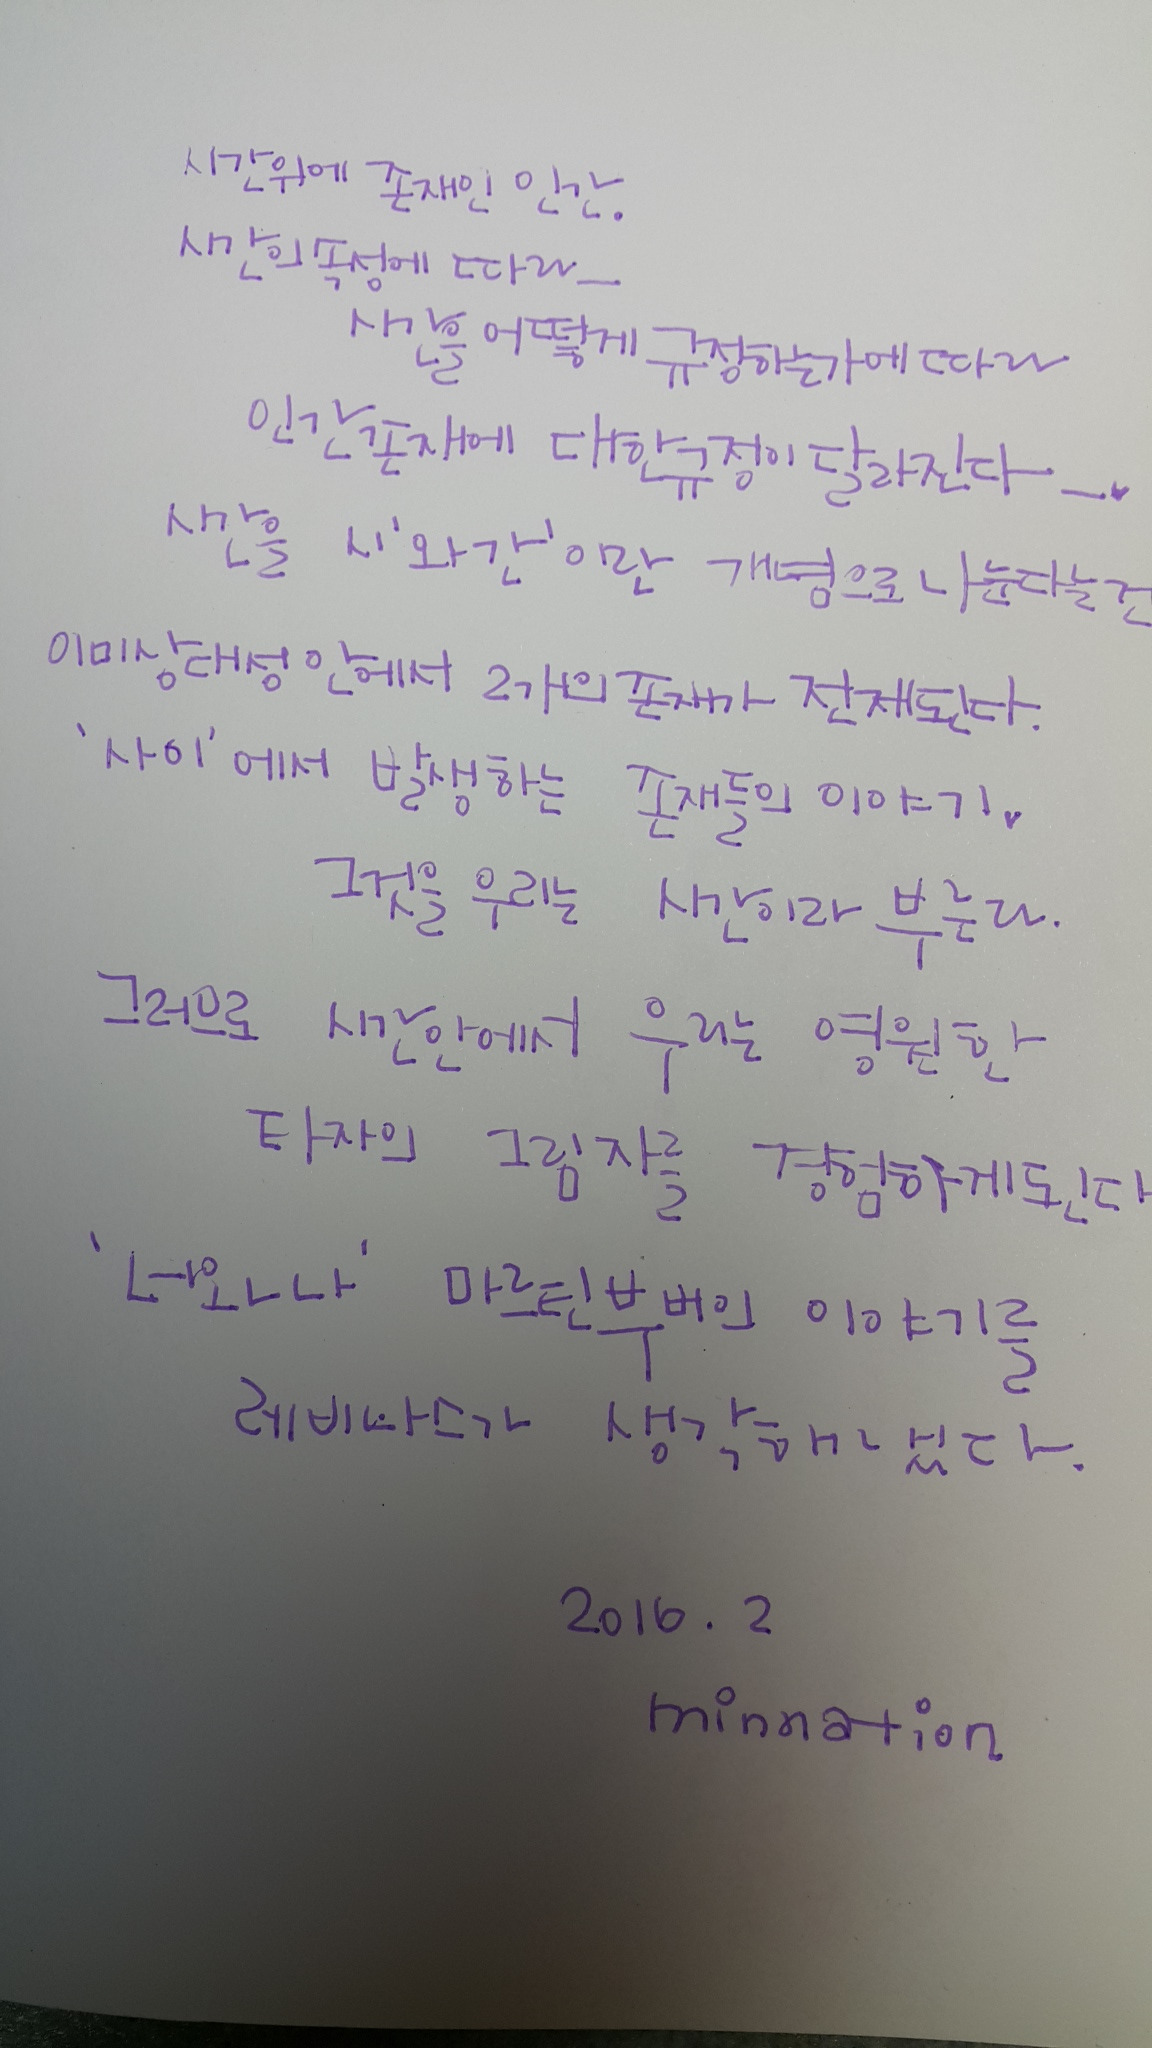 시간위에 존재인 인간.
시간의 속성에 따라 —
시간을 어떻게 규정하는가에 따라
인간존재에 대한 규정이 달라진다 —.
시간을 시'와 간'이란 개념으로 나눈다는건
이미 상대성 안에서 2개의 존재가 전제된다.
'사이'에서 발생하는 존재들의 이야기.
그것을 우리는 시간이라 부른다.
그러므로 시간안에서 우리는 영원한
타자의 그림자를 경험하게된다
'너와 나' 마르틴부버의 이야기를
레비나스가 생각해냈다.
2016. 2
minnation